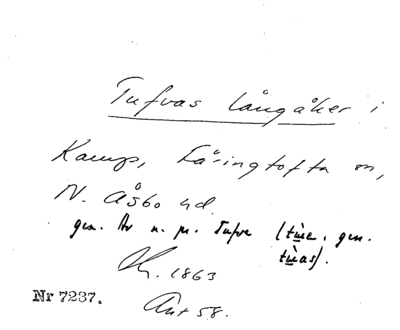 Tufvas långåker i
Kamp, Färingtofta sn,
N. Åsbo hd.
gen. Av n. pr. Tufve (tɯe. gen.
tɯas).
1863
Nr 7237.
Ant 58.